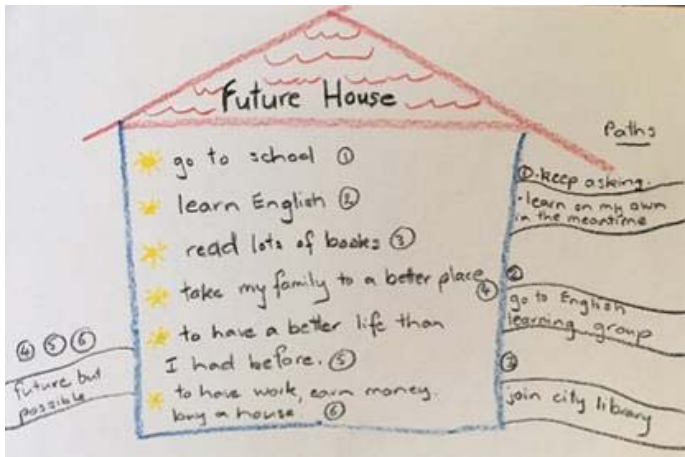 Future House
go to school ①
learn English ②
read lots of books ③
take my family to a better place
④
to have a better life than
I had before. ⑤
to have work, earn money.
buy a house ⑥
Paths
①·keep asking.
·learn on my own
in the meantime
②
go to English
learning group
③
join city library
④ ⑤ ⑥
future but
possible